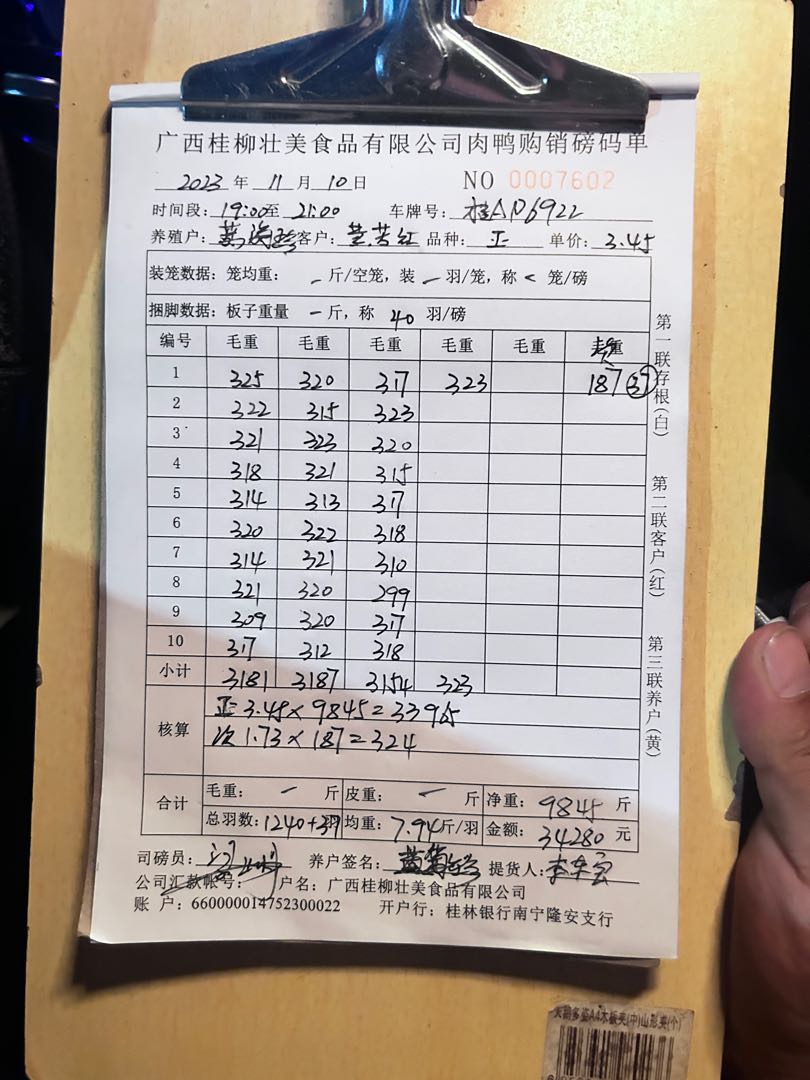 广西桂柳壮美食品有限公司肉鸭购销磅码单
2023 年 11 月 10 日 NO 0007602
时间段: 19:00 至 21:00 车牌号: 桂AP6922
养殖户: 客户: 红 品种: 正 单价: 3.45
装笼数据: 笼均重: 斤/空笼, 装 羽/笼, 称 笼/磅
捆脚数据: 板子重量 一 斤, 称 40 羽/磅
编号 毛重 毛重 毛重 毛重 毛重 重
1 325 320 317 323 187 37
2 322 315 323
3 321 323 320
4 318 321 315
5 314 313 317
6 320 322 318
7 314 321 310
8 321 320 299
9 309 320 317
10 317 312 318
小计 3181 3187 3154 323
核算 正 3.45 × 9845 = 33965
次 1.73 × 187 = 324
合计 毛重: 一 斤 皮重: 一 斤 净重: 9845 斤
总羽数: 1240+37 羽 均重: 7.94 斤/羽 金额: 34280 元
司磅员: 养户签名: 提货人:
公司汇款帐号: 户名: 广西桂柳壮美食品有限公司
账 户: 660000014752300022 开户行: 桂林银行南宁隆安支行
第一联存根(白)
第二联客户(红)
第三联养户(黄)
A4木板夹(中)山形夹(个)